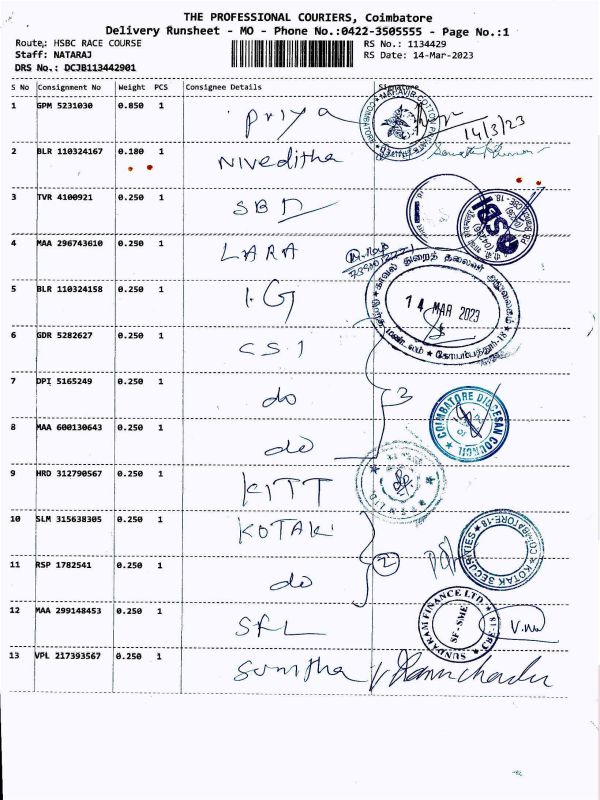 THE PROFESSIONAL COURIERS, Coimbatore
Delivery Runsheet - MO - Phone No.:0422-3505555 - Page No.:1
Route: HSBC RACE COURSE
RS No.: 1134429
Staff: NATARAJ
RS Date: 14-Mar-2023
DRS No.: DCJB113442901
S No Consignment No Weight PCS Consignee Details Signature
1 GPM 5231030 0.850 1 Priya 14/3/23
2 BLR 110324167 0.180 1 Niveditha
3 TVR 4100921 0.250 1 SBI
4 MAA 296743610 0.250 1 LARA
5 BLR 110324158 0.250 1 I.G
14 MAR 2023
6 GDR 5282627 0.250 1 CSI
7 DPI 5165249 0.250 1 do 3
COIMBATORE DIOCESAN COUNCIL
8 MAA 600130643 0.250 1 do
9 HRD 312790567 0.250 1 KITT
10 SLM 315638305 0.250 1 KOTAK
KOTAK SECURITIES * COIMBATORE-18
11 RSP 1782541 0.250 1 do 2
12 MAA 299148453 0.250 1 SFL
SUNDARAM FINANCE LTD. SF-SME CBE-18
13 VPL 217393567 0.250 1 Sunitha